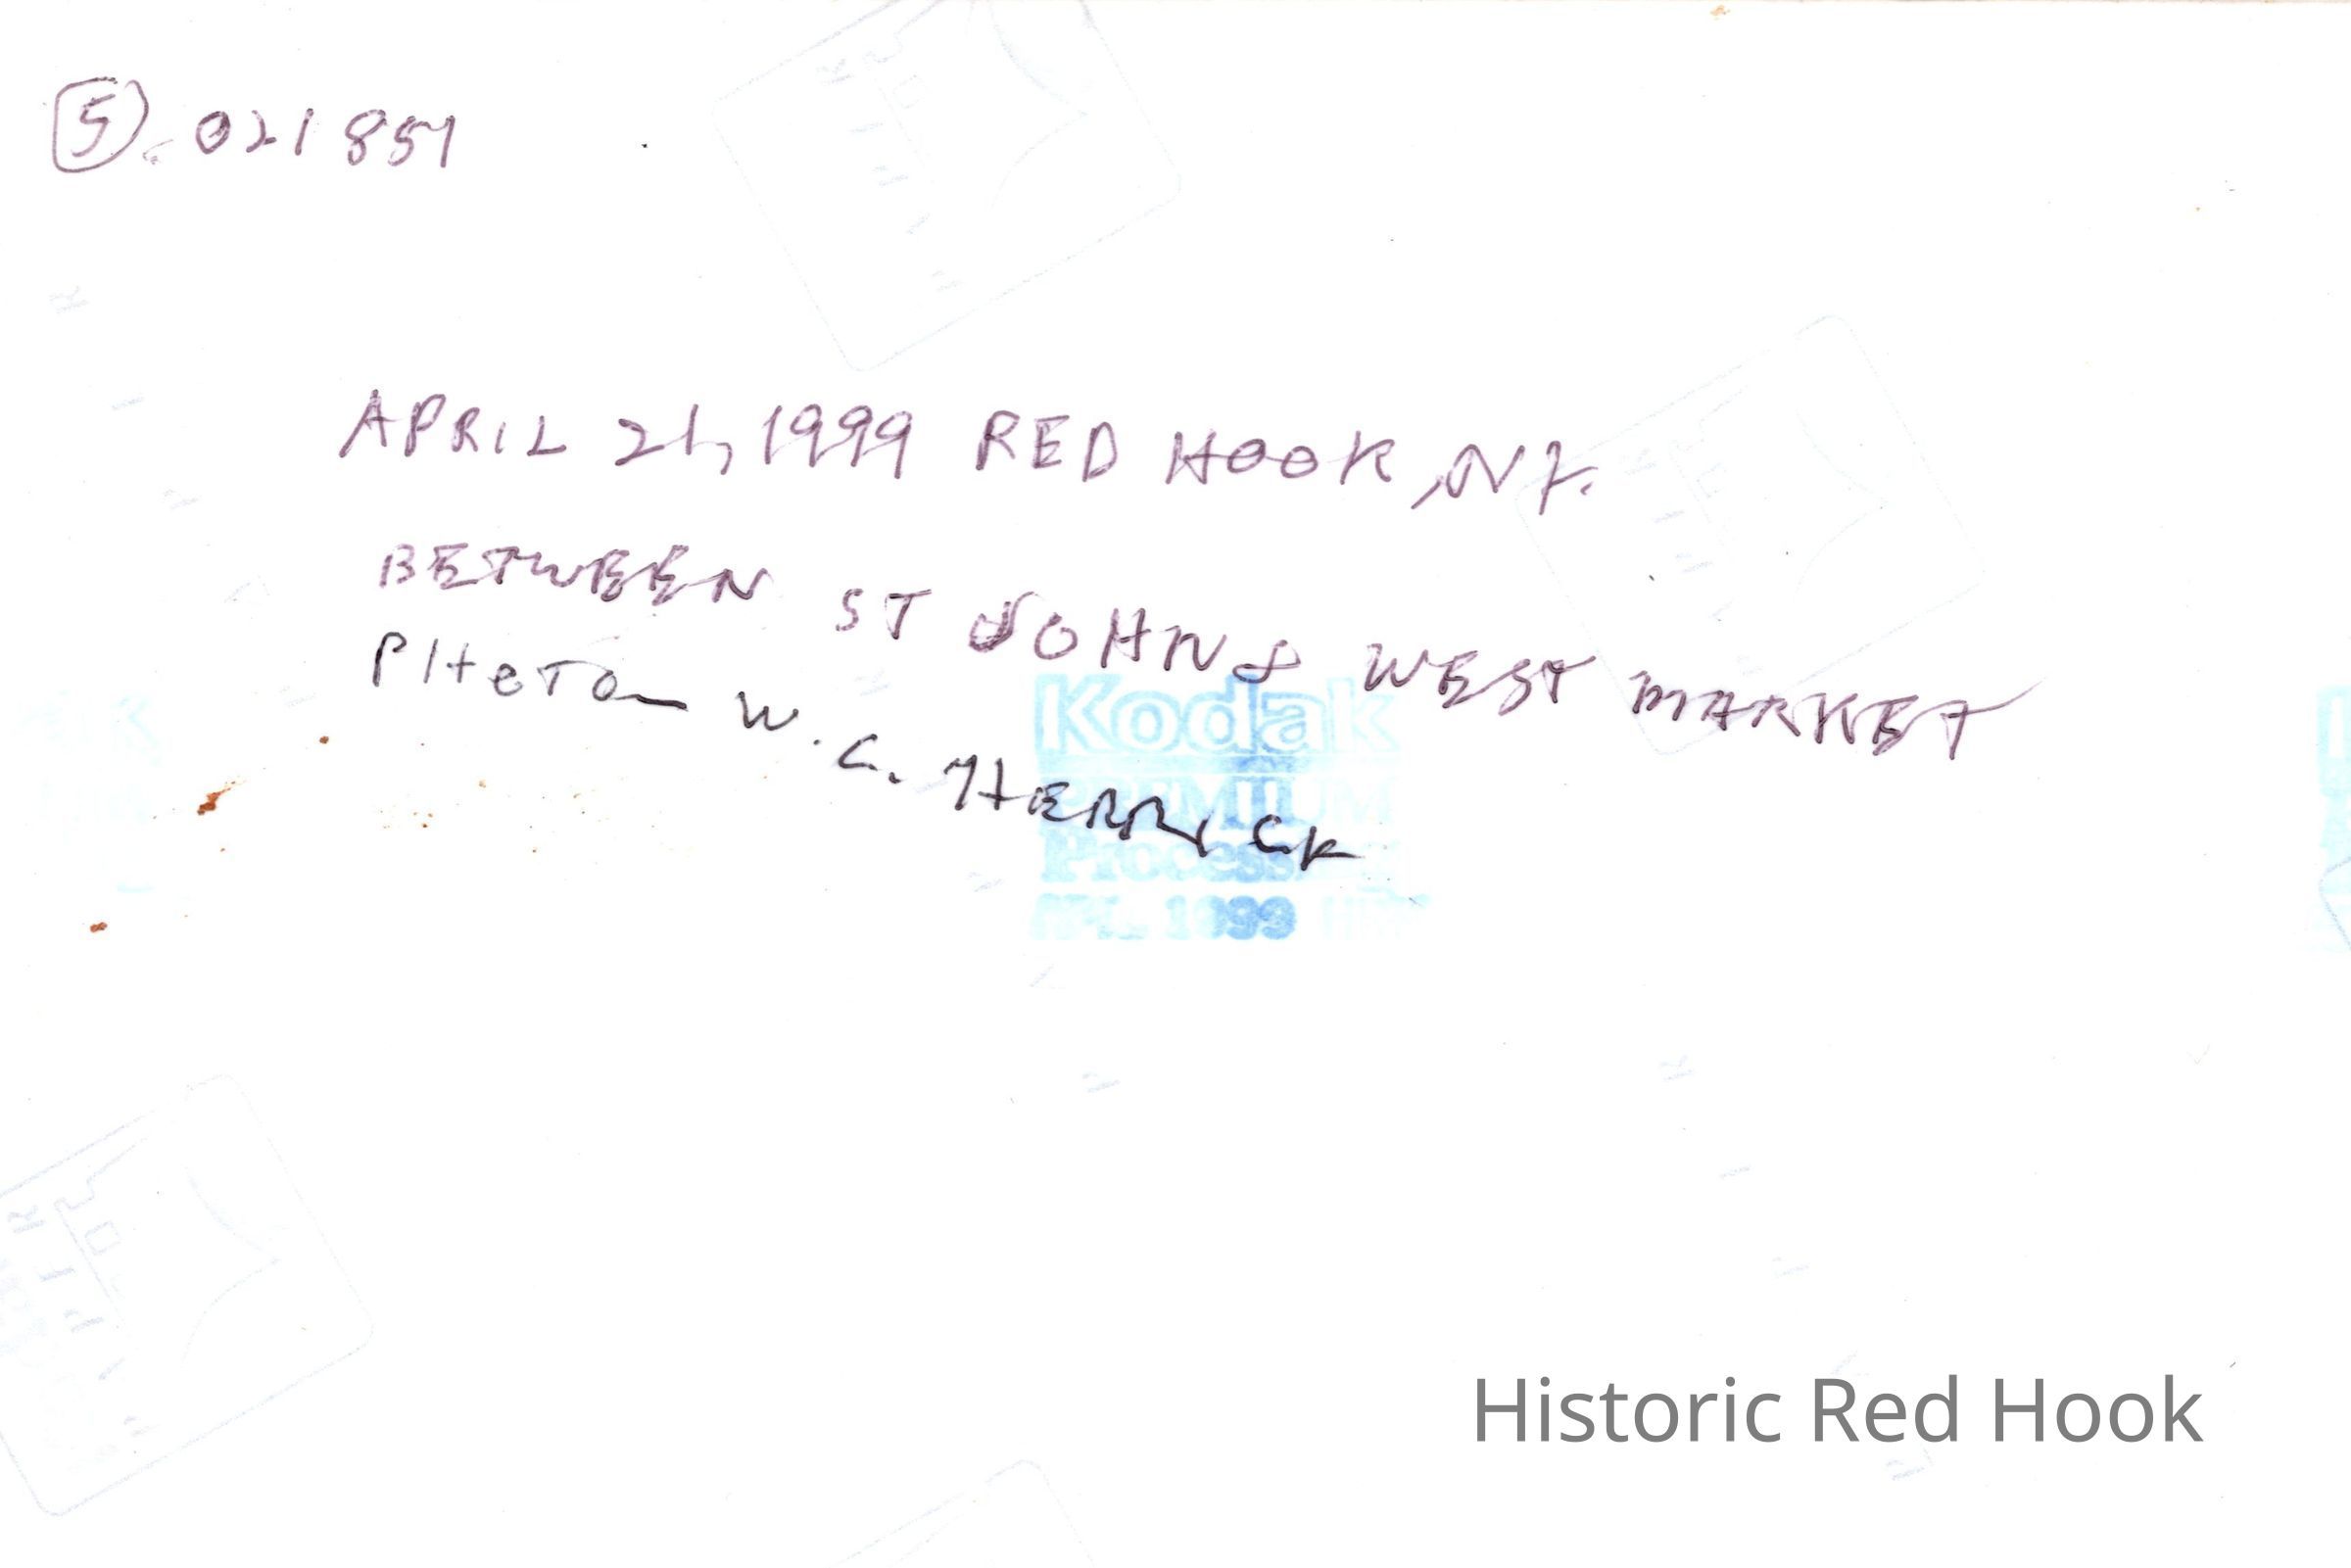 5. 021851
APRIL 21, 1999 RED HOOK, NY.
BETWEEN ST JOHN & WEST MARKET
PHOTO— W. C. HERRICK
Kodak
PREMIUM
Processing
1999
Historic Red Hook